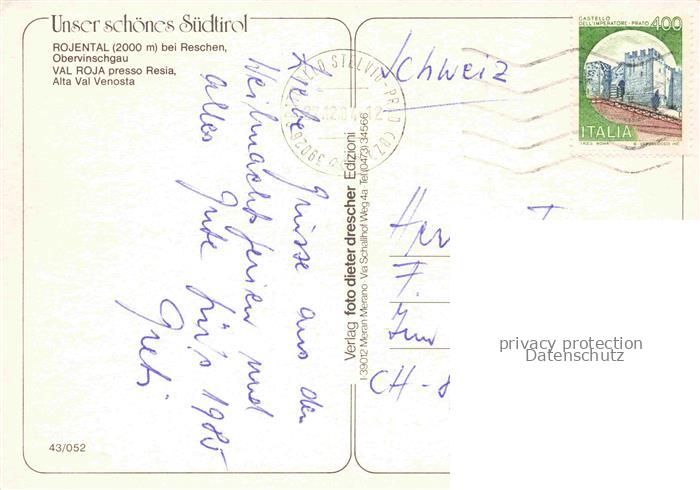 Unser schönes Südtirol
ROJENTAL (2000 m) bei Reschen,
Obervinschgau
VAL ROJA presso Resia,
Alta Val Venosta
Liebe Grüsse aus den
Weihnachtsferien und
alles Gute für's 1985
Greti
43/052
Verlag foto dieter drescher Edizioni
I-39012 Meran Merano · Via Schallhof Weg 4a · Tel (0473) 34566
STELVIO - PRAD (BZ)
39026
CASTELLO
DELL'IMPERATORE - PRATO
400
ITALIA
I.P.Z.S. ROMA
Schweiz
F.
CH-8
privacy protection
Datenschutz